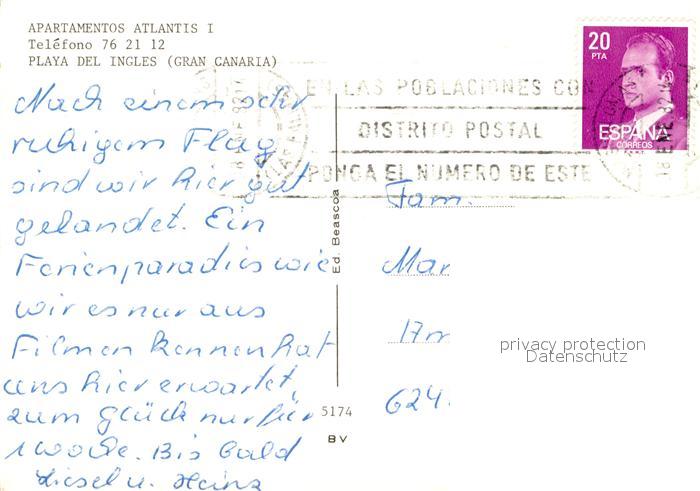 APARTAMENTOS ATLANTIS I
Teléfono 76 21 12
PLAYA DEL INGLES (GRAN CANARIA)
20
PTA
ESPAÑA
CORREOS
EN LAS POBLACIONES CON
DISTRITO POSTAL
PONGA EL NUMERO DE ESTE
Nach einem sehr
ruhigem Flug
sind wir hier gut
gelandet. Ein
Ferienparadies wie
wir es nur aus
Filmen kennen hat
uns hier erwartet,
zum Glück nur für
1 Woche. Bis bald
Liesel u. Heinz
Ed. Beascoa
5174
BV
Fam.
Mar
17m
624.
privacy protection
Datenschutz